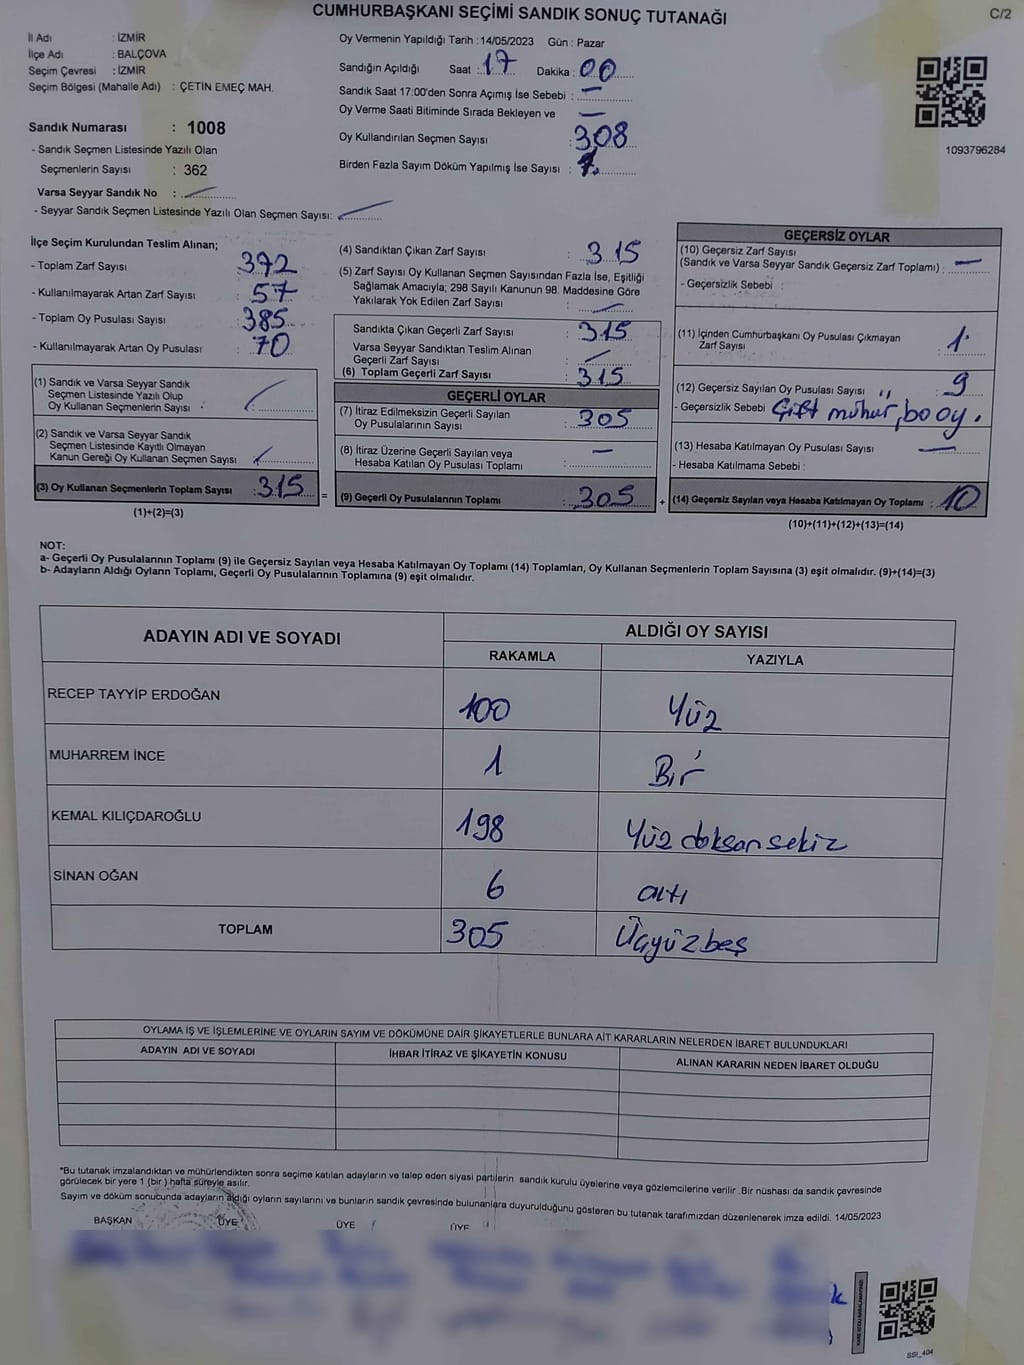 CUMHURBAŞKANI SEÇİMİ SANDIK SONUÇ TUTANAĞI
C/2
İl Adı : İZMİR
İlçe Adı : BALÇOVA
Seçim Çevresi : İZMİR
Seçim Bölgesi (Mahalle Adı) : ÇETİN EMEÇ MAH.
Sandık Numarası : 1008
- Sandık Seçmen Listesinde Yazılı Olan
Seçmenlerin Sayısı : 362
Varsa Seyyar Sandık No :
- Seyyar Sandık Seçmen Listesinde Yazılı Olan Seçmen Sayısı:
Oy Vermenin Yapıldığı Tarih :14/05/2023 Gün : Pazar
Sandığın Açıldığı Saat : 17 Dakika : 00
Sandık Saat 17:00'den Sonra Açımış İse Sebebi : —
Oy Verme Saati Bitiminde Sırada Bekleyen ve —
Oy Kullandırılan Seçmen Sayısı : 308
Birden Fazla Sayım Döküm Yapılmış İse Sayısı :
1093796284
İlçe Seçim Kurulundan Teslim Alınan;
- Toplam Zarf Sayısı : 372
- Kullanılmayarak Artan Zarf Sayısı : 57
- Toplam Oy Pusulası Sayısı : 385
- Kullanılmayarak Artan Oy Pusulası : 70
(1) Sandık ve Varsa Seyyar Sandık
Seçmen Listesinde Yazılı Olup
Oy Kullanan Seçmenlerin Sayısı :
(2) Sandık ve Varsa Seyyar Sandık
Seçmen Listesinde Kayıtlı Olmayan
Kanun Gereği Oy Kullanan Seçmen Sayısı :
(3) Oy Kullanan Seçmenlerin Toplam Sayısı : 315 =
(1)+(2)=(3)
(4) Sandıktan Çıkan Zarf Sayısı : 315
(5) Zarf Sayısı Oy Kullanan Seçmen Sayısından Fazla İse, Eşitliği
Sağlamak Amacıyla; 298 Sayılı Kanunun 98. Maddesine Göre
Yakılarak Yok Edilen Zarf Sayısı :
Sandıkta Çıkan Geçerli Zarf Sayısı : 315
Varsa Seyyar Sandıktan Teslim Alınan
Geçerli Zarf Sayısı :
(6) Toplam Geçerli Zarf Sayısı : 315
GEÇERLİ OYLAR
(7) İtiraz Edilmeksizin Geçerli Sayılan
Oy Pusulalarının Sayısı : 305
(8) İtiraz Üzerine Geçerli Sayılan veya
Hesaba Katılan Oy Pusulası Toplamı : —
(9) Geçerli Oy Pusulalarının Toplamı : 305 +
GEÇERSİZ OYLAR
(10) Geçersiz Zarf Sayısı
(Sandık ve Varsa Seyyar Sandık Geçersiz Zarf Toplamı) : —
- Geçersizlik Sebebi :
(11) İçinden Cumhurbaşkanı Oy Pusulası Çıkmayan
Zarf Sayısı : 1
(12) Geçersiz Sayılan Oy Pusulası Sayısı : 9
- Geçersizlik Sebebi Çift mühür, boş oy.
(13) Hesaba Katılmayan Oy Pusulası Sayısı : —
- Hesaba Katılmama Sebebi :
(14) Geçersiz Sayılan veya Hesaba Katılmayan Oy Toplamı : 10
(10)+(11)+(12)+(13)=(14)
NOT:
a- Geçerli Oy Pusulalarının Toplamı (9) ile Geçersiz Sayılan veya Hesaba Katılmayan Oy Toplamı (14) Toplamları, Oy Kullanan Seçmenlerin Toplam Sayısına (3) eşit olmalıdır. (9)+(14)=(3)
b- Adayların Aldığı Oyların Toplamı, Geçerli Oy Pusulalarının Toplamına (9) eşit olmalıdır.
ADAYIN ADI VE SOYADI ALDIĞI OY SAYISI
RAKAMLA YAZIYLA
RECEP TAYYİP ERDOĞAN 100 Yüz
MUHARREM İNCE 1 Bir
KEMAL KILIÇDAROĞLU 198 Yüz doksan sekiz
SİNAN OĞAN 6 altı
TOPLAM 305 Üçyüzbeş
OYLAMA İŞ VE İŞLEMLERİNE VE OYLARIN SAYIM VE DÖKÜMÜNE DAİR ŞİKAYETLERLE BUNLARA AİT KARARLARIN NELERDEN İBARET BULUNDUKLARI
ADAYIN ADI VE SOYADI İHBAR İTİRAZ VE ŞİKAYETİN KONUSU ALINAN KARARIN NEDEN İBARET OLDUĞU
*Bu tutanak imzalandıktan ve mühürlendikten sonra seçime katılan adayların ve talep eden siyasi partilerin sandık kurulu üyelerine veya gözlemcilerine verilir .Bir nüshası da sandık çevresinde
görülecek bir yere 1 (bir ) hafta süreyle asılır.
Sayım ve döküm sonucunda adayların aldığı oyların sayılarını ve bunların sandık çevresinde bulunanlara duyurulduğunu gösteren bu tutanak tarafımızdan düzenlenerek imza edildi. 14/05/2023
BAŞKAN ÜYE ÜYE ÜYE
SSİ_404